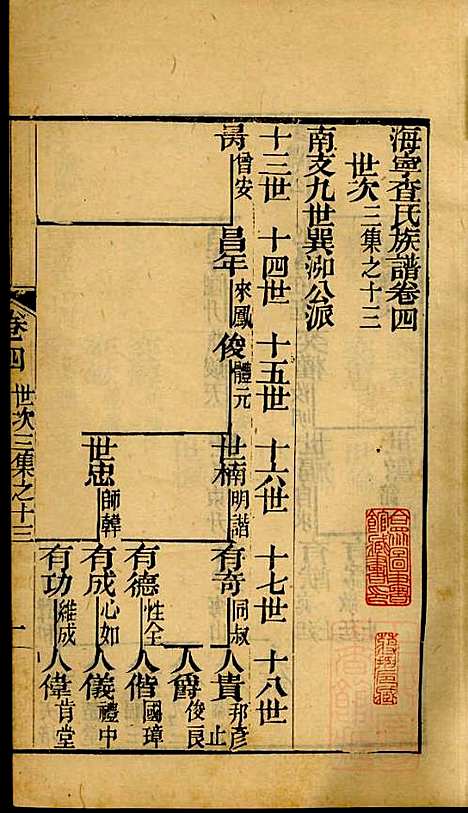 海寧查氏族譜卷四
世次三集之十三
南支九世巽泖公派
十三世 十四世 十五世 十六世 十七世 十八世
昌年來鳳
俊體元
世楠明諧
有奇同叔
人貴邦彥 止
人爵俊良
有德性全
人偕國璋
世忠師韓
有成心如
人儀禮中
有功維成
人偉肯堂
卷四 世次三集之十三 一